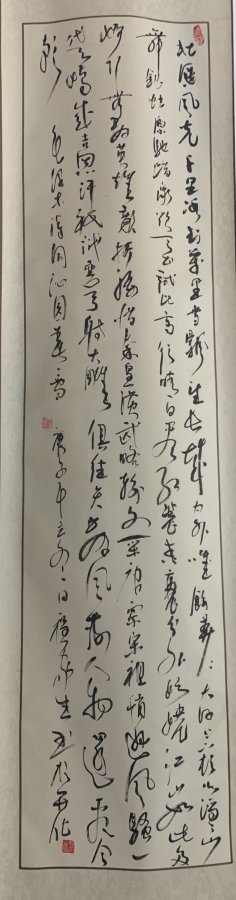 北国風光千里冰封万里雪飘望长城内外惟餘莽々大河上下顿失滔々山
舞銀蛇原驰蜡象欲与天公试比高须晴日看红装素裹分外妖娆江山如此多
娇引无数英雄竞折腰惜秦皇漢武略输文采唐宗宋祖稍逊风骚一
代天骄成吉思汗祇識弯弓射大雕俱往矣数风流人物还看今
朝 毛泽东詞沁园春雪 庚子 立冬 日 生书于